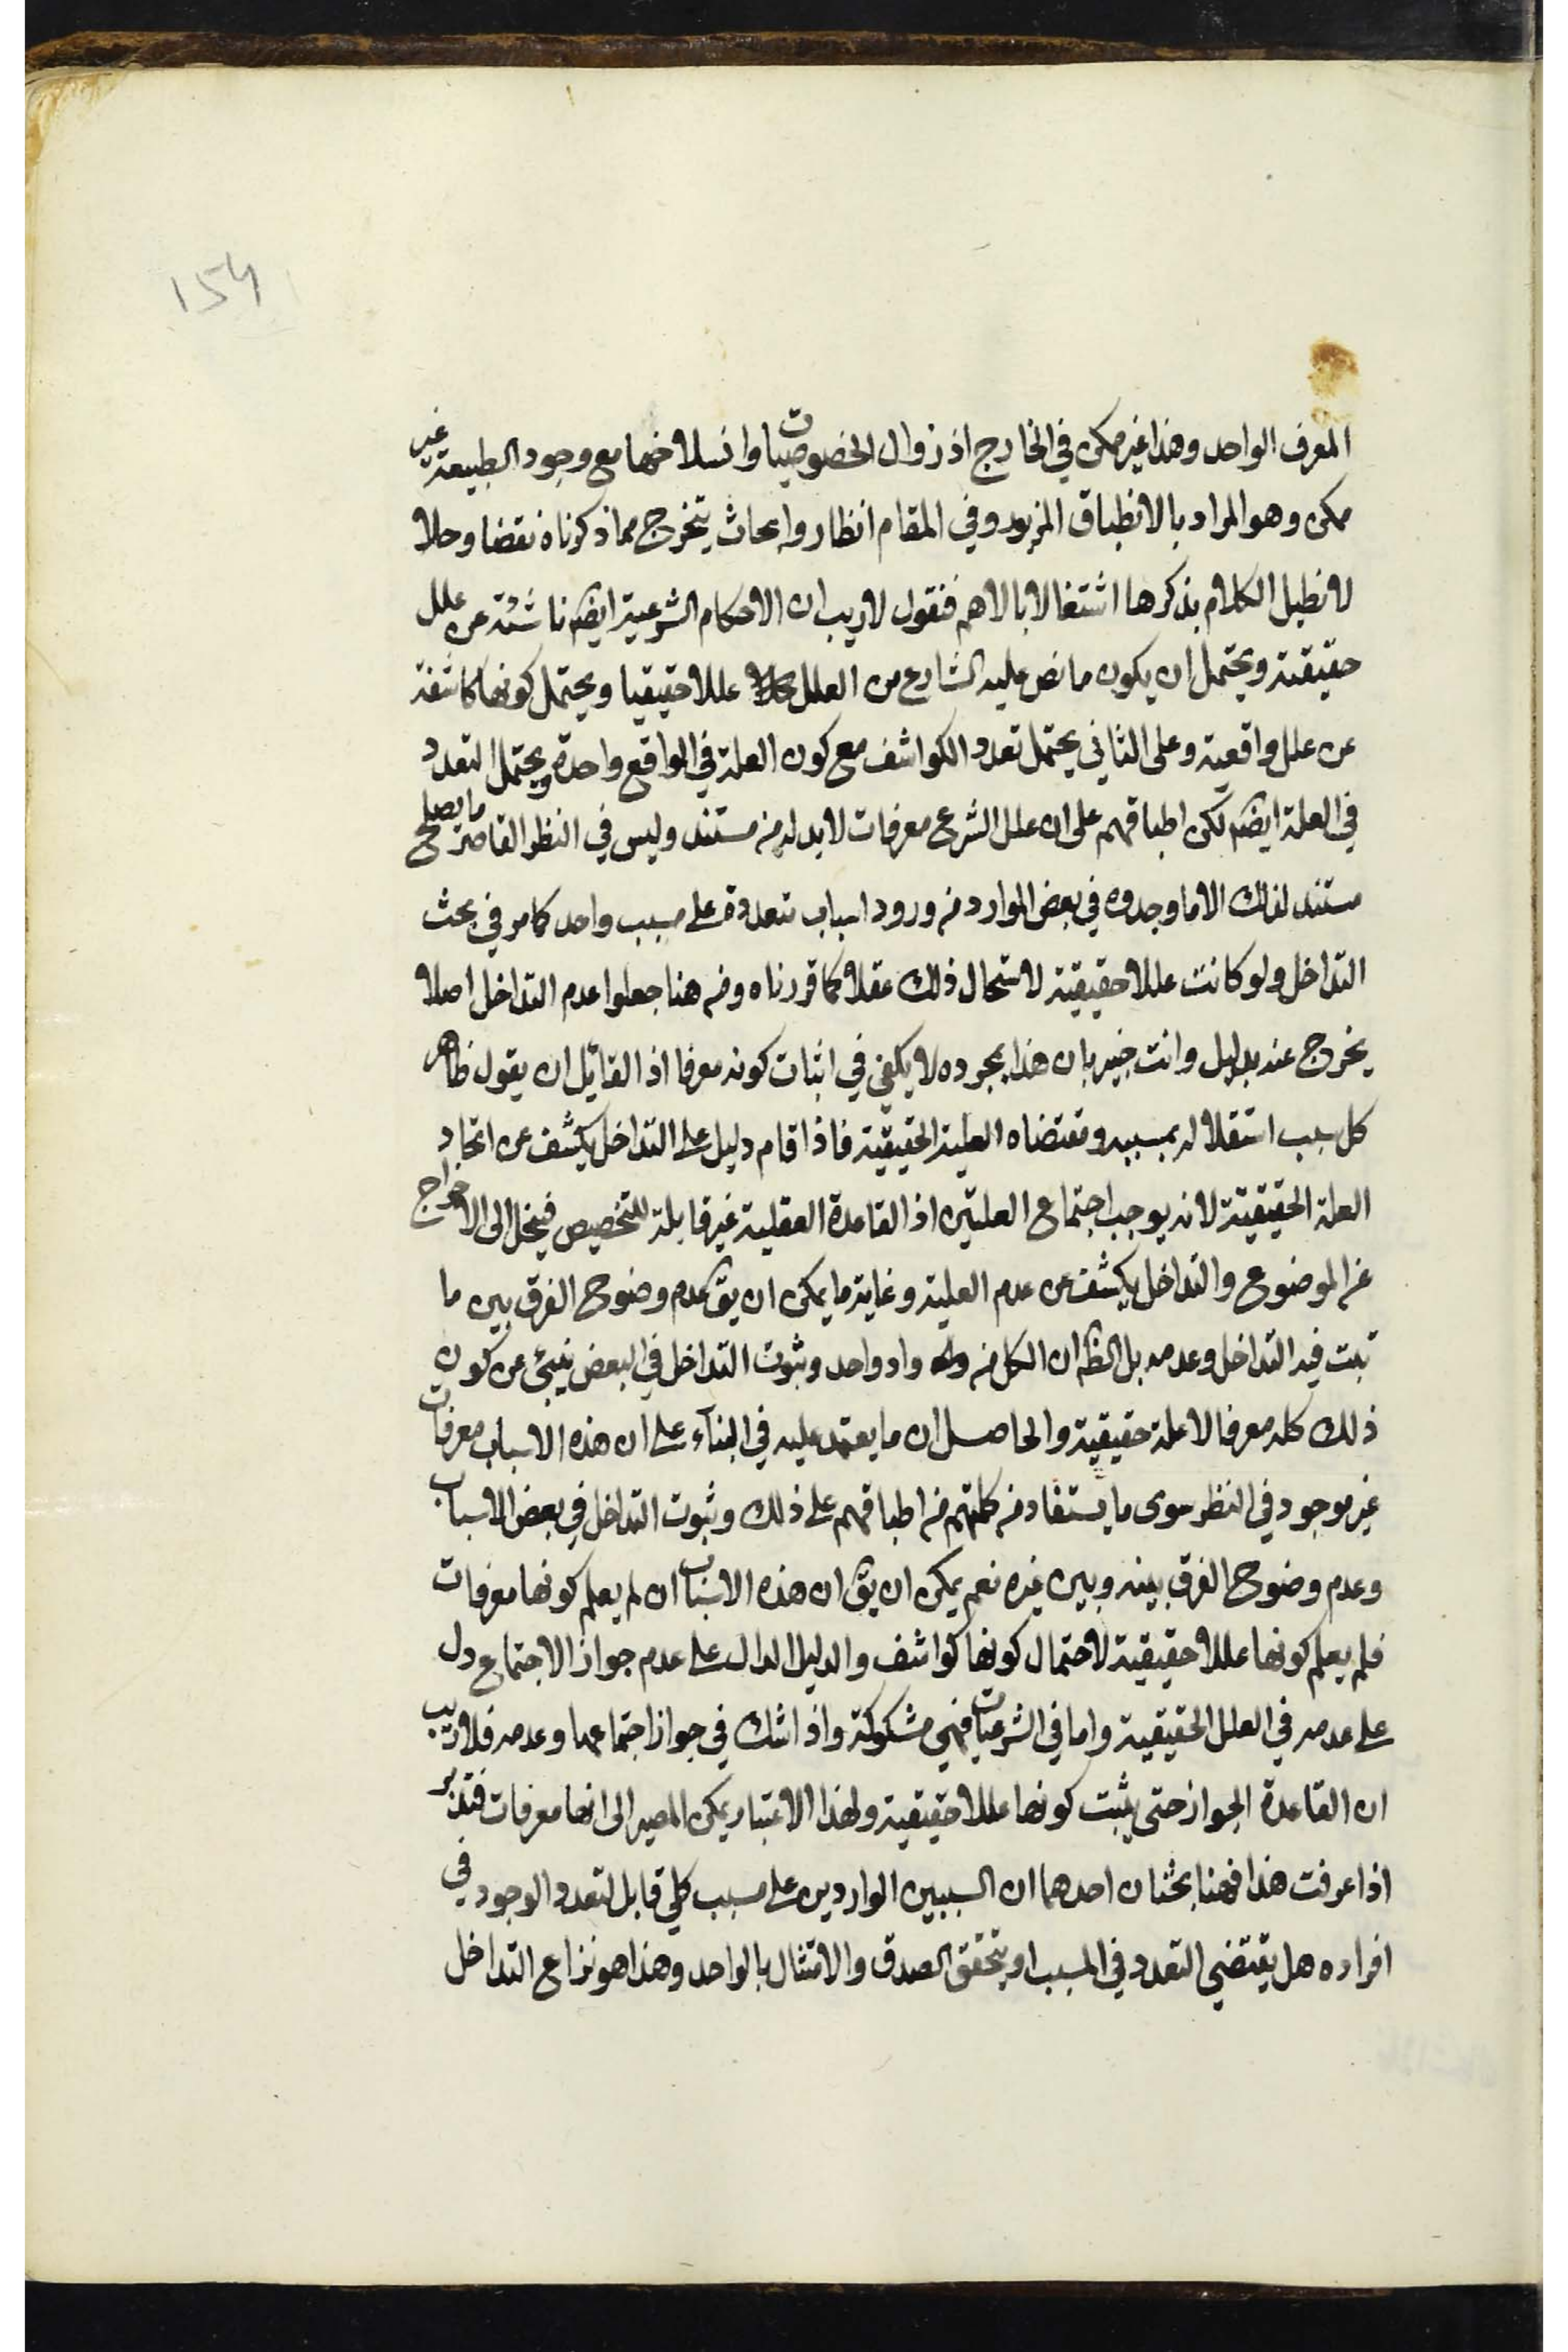 154
المعرف الواحد وهذا غير ممكن في الخارج اذ زوال الخصوصيات وانسلاخها مع وجود الطبيعة غير
ممكن وهو المراد بالانطباق المزبور وفي المقام انظار وابحاث يتخرج مما ذكرناه نقضا وحلا
لا نطيل الكلام بذكرها اشتغالا بالاهم فنقول لا ريب ان الاحكام الشرعية ايضا ناشئة عن علل
حقيقية ويحتمل ان يكون ما نص عليه الشارع من العلل عللا حقيقيا ويحتمل كونها كاشفة
عن علل واقعية وعلى الثاني يحتمل تعدد الكواشف مع كون العلة في الواقع واحدة ويحتمل التعدد
في العلة ايضا لكن اطباقهم على ان علل الشرع معرفات لا بد له من مستند وليس في النظر القاصر ما يصلح
مستند لذلك الا ما وجدوه في بعض الموارد من ورود اسباب متعددة على مسبب واحد كما مر في بحث
التداخل ولو كانت عللا حقيقية لاستحال ذلك عقلا كما قررناه ومن هنا جعلوا عدم التداخل اصلا
يخرج عنه بدليل وانت خبير بان هذا بمجرده لا يكفي في اثبات كونه معرفا اذ القائل ان يقول ظاهر
كل سبب استقلاله بمسببه ومقتضاه العلية الحقيقية فاذا قام دليل على التداخل يكشف عن اتحاد
العلة الحقيقية لا انه يوجب اجتماع العلتين اذ القاعدة العقلية غير قابلة للتخصيص فينحل الى الاخراج
عن الموضوع والتداخل يكشف عن عدم العلية وغاية ما يمكن ان يق عدم وضوح الفرق بين ما
ثبت فيه التداخل وعدمه بل الظ ان الكل من واد واحد وثبوت التداخل في البعض ينبئ عن كون
ذلك كله معرفا لا علة حقيقية والحاصل ان ما يعتمد عليه في البناء على ان هذه الاسباب معرفات
غير موجود في النظر سوى ما يستفاد من كلمتهم من اطباقهم على ذلك وثبوت التداخل في بعض الاسباب
وعدم وضوح الفرق بينه وبين غيره نعم يمكن ان يق ان هذه الاسباب ان لم يعلم كونها معرفات
فلم يعلم كونها عللا حقيقية لاحتمال كونها كواشف والدليل الدال على عدم جواز الاجتماع دل
على عدمه في العلل الحقيقية واما في الشرعيات فهي مشكوكة واذا شك في جواز اجتماعهما وعدمه فلا ريب
ان القاعدة الجواز حتى يثبت كونها عللا حقيقية ولهذا الاعتبار يمكن المصير الى انها معرفات فتدبر
اذا عرفت هذا فهنا بحثان احدهما ان السببين الواردين على مسبب كلي قابل لتعدد الوجود في
افراده هل يقتضي التعدد في المسبب او يتحقق الصدق والامتثال بالواحد وهذا هو نزاع التداخل